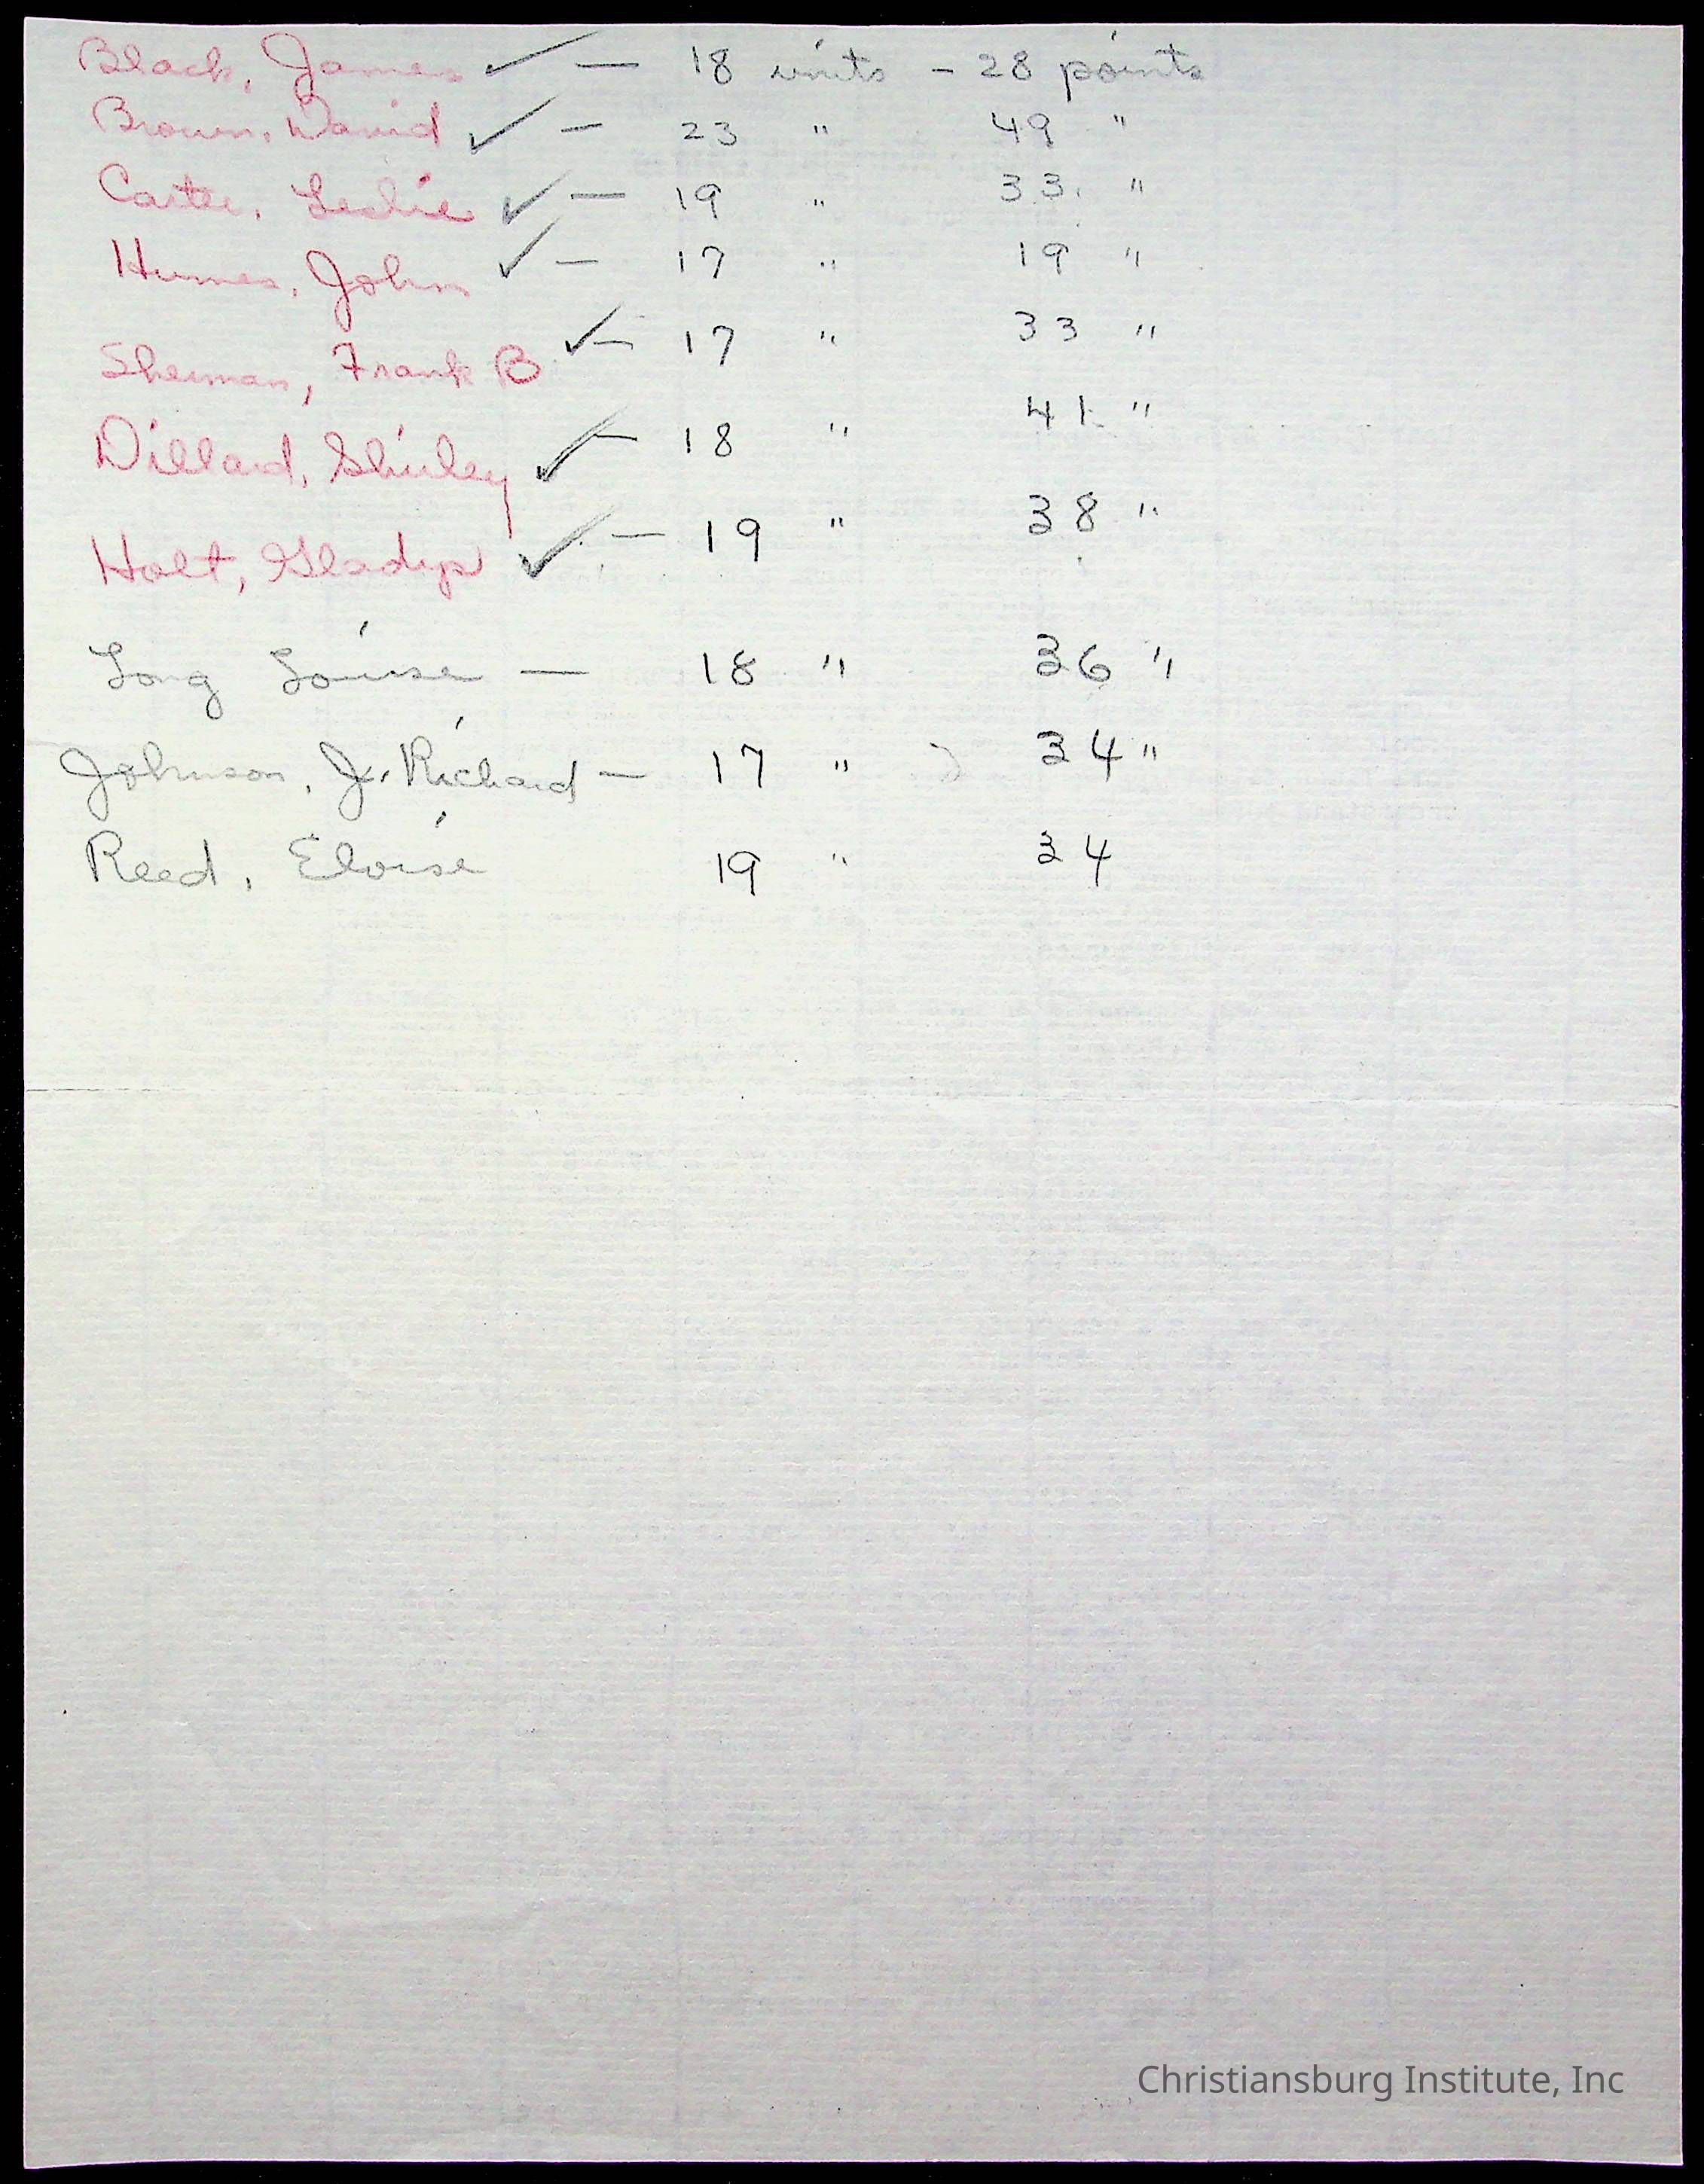 Black, James ✓ — 18 units - 28 points
Brown, David ✓ — 23 " 49 "
Carter, Leslie ✓ — 19 " 33. "
Humes, John ✓ — 17 " 19 "
Sherman, Frank B ✓ — 17 " 33 "
Dillard, Shirley ✓ — 18 " 41 "
Holt, Gladys ✓ — 19 " 38 "
Long Louise — 18 " 36 "
Johnson, J. Richard — 17 " 34 "
Reed, Eloise 19 " 34
Christiansburg Institute, Inc